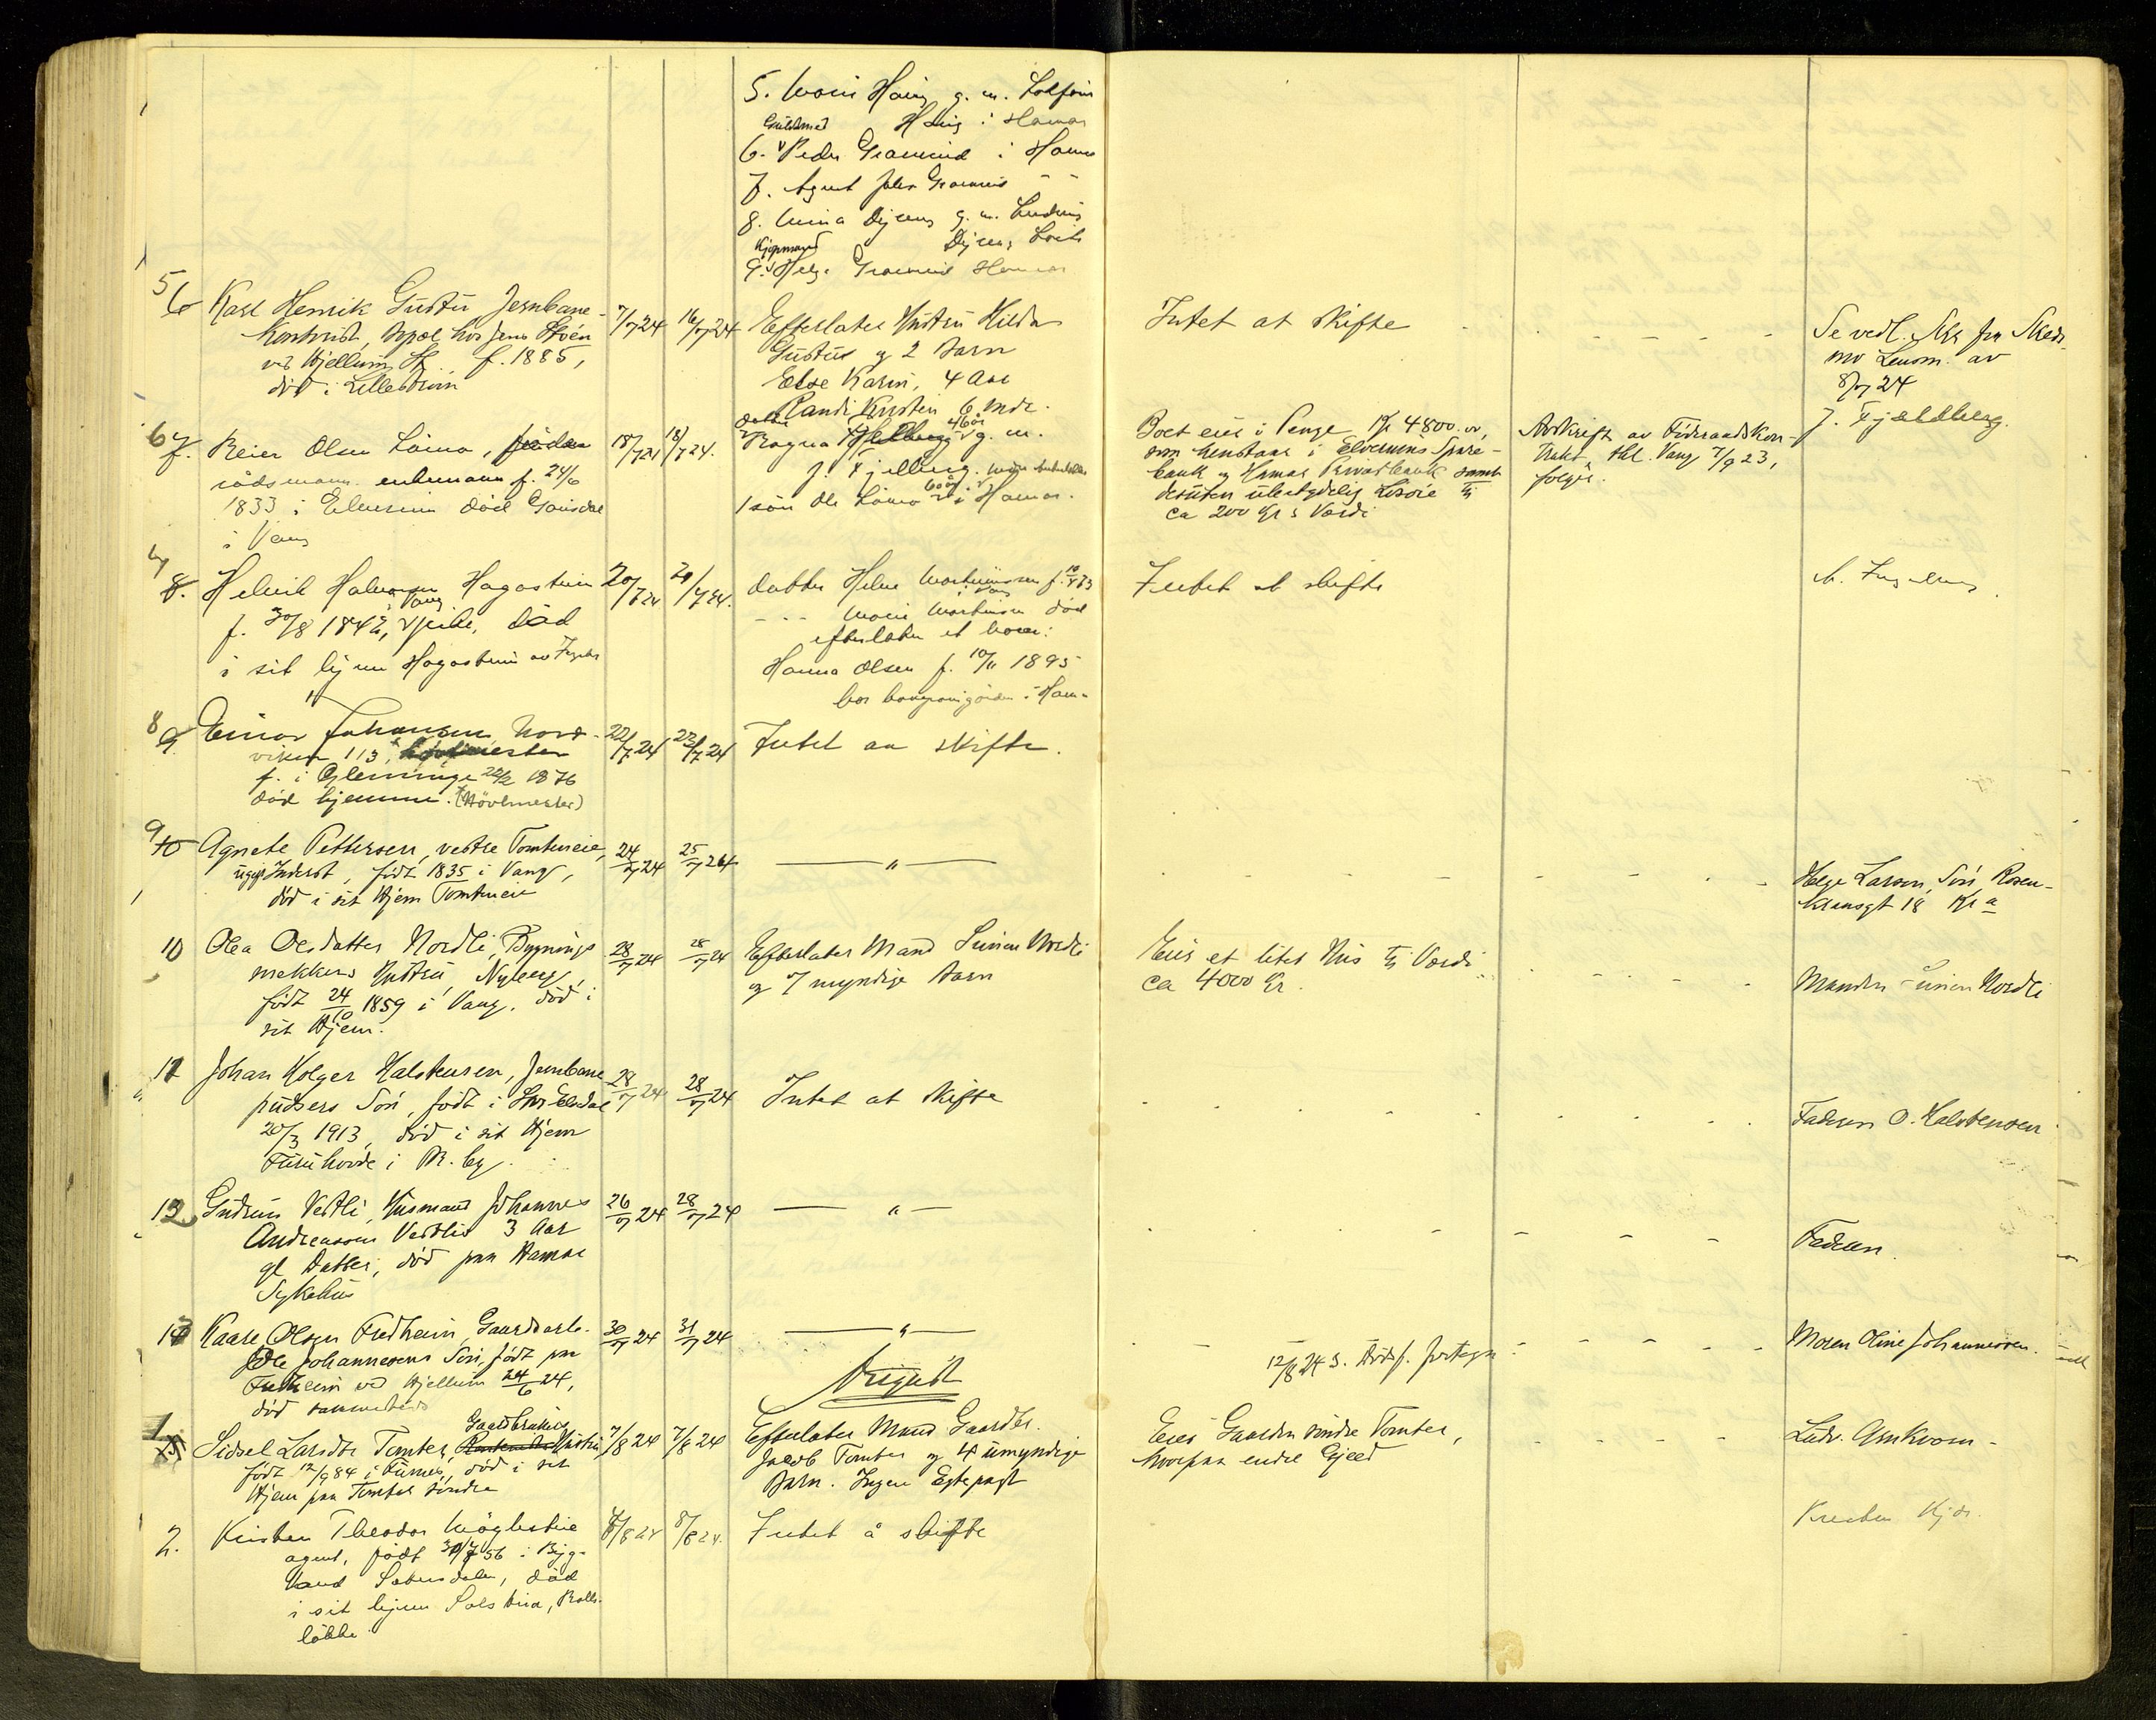 5. Marie Høieg g. m.
Høieg i Hamar
6. Peder i Hamar
7. Agent
8. g. m.
Kjøpmand
9. Helge Hamar
5
6 Karl Henrik Gustu Jernbane- 7/7 24 16/7 24 Efterlater Hustru Hilda Intet at skifte - - - Se vedl. Skr fra Skeds-
Kontorist, hos Jens
ved Hjellum St. f. 1885,
død i Lillestrøm
Gustus og 2 barn
Else Karin, 4 Aar
Randi Kirsten 6 Mdr.
mo Lensm. av
8/7 24
6
7. Reier Olsen Lømo, føderaads- 18/7 24 18/7 24.
raadsmann. enkemann f. 24/6
1833 i Elverum død Gaasdal
i Vang
datter 46 år
Ragna g. m.
J. Fjelberg.
60 år
1 søn Ole Lømo i Hamar.
Boet eier i Penge Kr 4800.00,
som henstaar i Elverums Spare-
bank og Hamar Privatbank samt
desuten ubetydelig Løsøre til
ca 200 Kr s Værdi
Avskrift av Føderaadskon-
trakt thl. Vang 7/9 23,
følger.
J. Fjeldberg.
7
8. Helene Hagastuen 20/7 24 21/7 24.
i Vang
f. 30/8 1842, død
i sit hjem Hagastuen
datter Helene Martinussen
- - - Marie Martinsen død
efterlater et barn:
Hanna Olsen f. 10/11 1895
bor i Ham-
Intet at skifte
8
9. Einar Johansen, Nord- 22/7 24 22/7 24 Intet aa skifte.
viken 113,
f. i Glemminge 22/2 1876
død hjemme. (Høvlmester)
9
10 Agnete Pettersen, vestre Tomtereie, 24/7 24 25/7 24 — " —
ugift Inderst, født 1835 i Vang,
død i sit Hjem Tomtereie
Helge Larsen, Søn, Rosen-
kransgt 18 Kra
10 Olea Olsdatter Nordli, Bygnings- 28/7 24 28/7 24 Efterlater Mand Simen Nordli
snekkers Hustru, Nyberg,
født 24/10 1859 i Vang, død i
sit Hjem.
og 7 myndige barn
Eier et litet Hus til Værdi
ca 4000 Kr.
Manden Simen Nordli
11 Johan Holger Halstensen, Jernbane- 28/7 24 28/7 24 Intet at skifte
pudsers Søn, født i Str. Elvdal
20/3 1913, død i sit Hjem
Furuhovde i
Faderen O. Halstensen
12 Gudrun Vestli, Husmand Johannes 26/7 24 28/7 24 — " —
Andreassen Vestlis 3 Aar
gl Datter, død paa Hamar
Sykehus
Faderen.
13 Kaare Olsen Fredheim, Gaardsarb. 30/7 24 31/7 24 — " —
Ole Johannesens Søn, født paa
Fredheim ved Hjellum 24/6 24,
død sammesteds
12/8 24 s. Dødsf. fortegn.
Moren Oline Johannessen.
August
1
15 Sidsel Larsdtr Tomter, Gaardbrukers Hustru, 7/8 24 7/8 24 Efterlater Mand Gaardbr.
født 12/9 84 i Furnes, død i sit
Hjem paa Tomter søndre
Jacob Tomter og 4 umyndige
Barn. Ingen Egtepagt
Eier Gaarden søndre Tomter,
hvorpaa endel Gjeld
Ludv. Arnkværn -
2. Kristen Theodor Møglestue 4/8 24 8/8 24. Intet å skifte
agent, født 30/7 56 i Byg-
land Sætersdalen, død
i sit hjem Solstua, Rolls-
løkke.